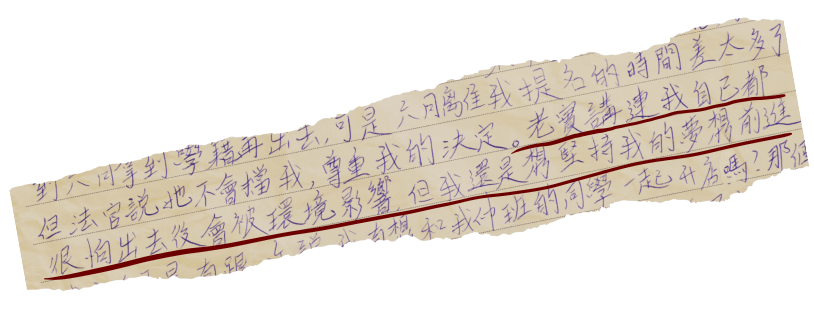 到六月拿到學籍再出去,可是六月離我提名的時間差太多了
但法官說她不會擋我,尊重我的決定。老實講連我自己都
很怕出去後會被環境影響,但我還是想堅持我的夢想前進
有想和我班的同學一起开店嗎?那但